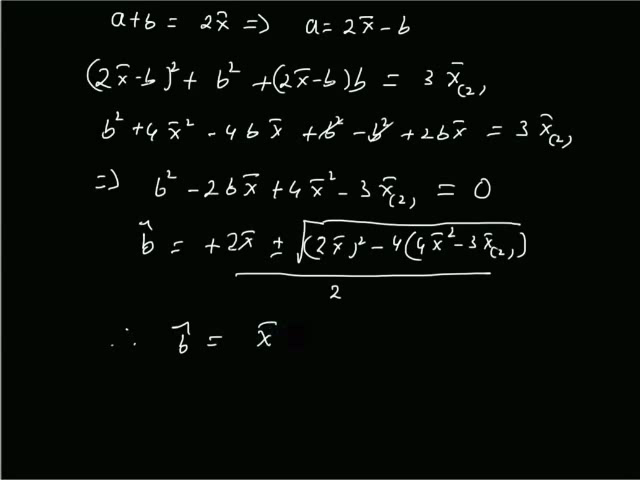 a+b = 2x̄ => a = 2x̄ - b
(2x̄-b)² + b² + (2x̄-b)b = 3 x̄₍₂₎
b² + 4x̄² - 4bx̄ + b² - b² + 2bx̄ = 3 x̄₍₂₎
=> b² - 2bx̄ + 4x̄² - 3x̄₍₂₎ = 0
b̂ = +2x̄ ± √((2x̄)² - 4(4x̄² - 3x̄₍₂₎))
2
∴ b̂ = x̄